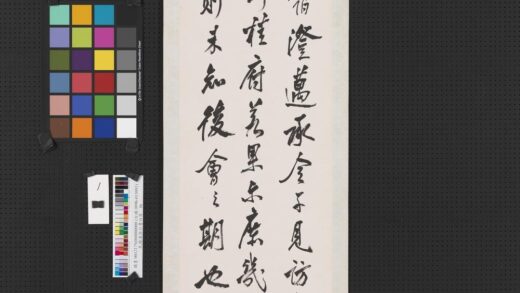 宿澄邁承令子見訪
桂府若果尔庶幾
則未知後會之期也